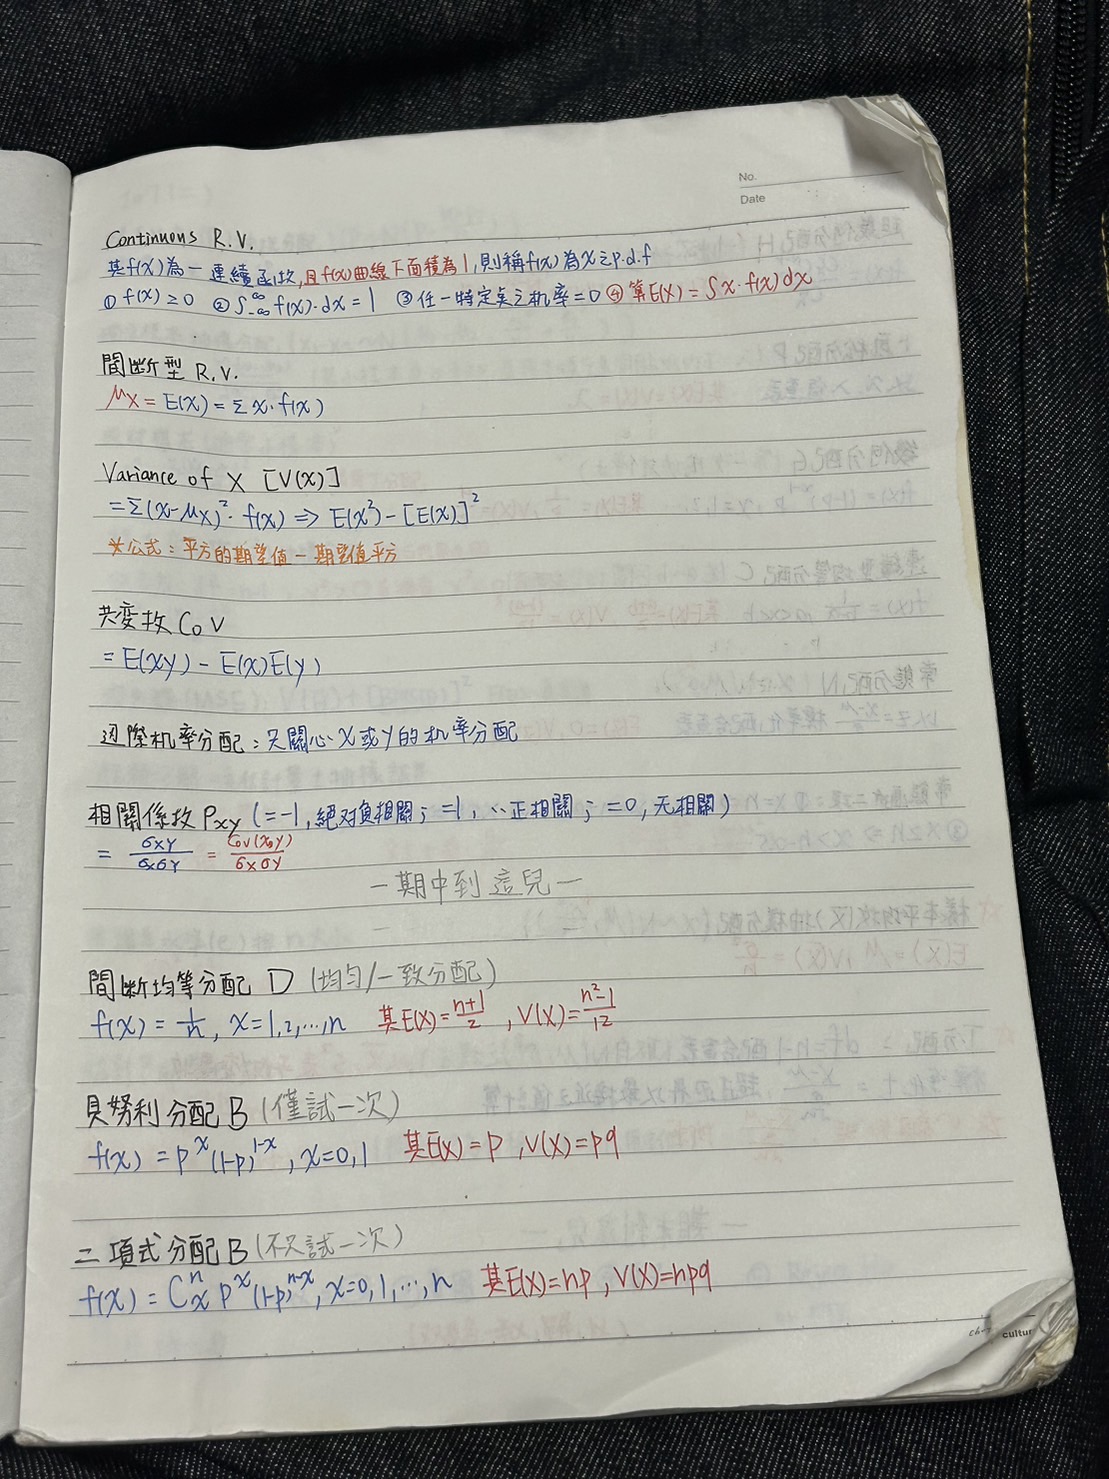 No.
Date
Continuous R.V.
其f(x)為一連續函数,且f(x)曲線下面積為1,則稱f(x)為x之p.d.f
① f(x)≥0 ② ∫_{-∞}^{∞} f(x)·dx = 1 ③任一特定点之机率=0 ④算E(x)=∫x·f(x)dx
間断型 R.V.
μx = E(x) = Σ x·f(x)
Variance of X [V(x)]
= Σ(x-μx)²·f(x) ⇒ E(x²)-[E(x)]²
*公式:平方的期望值-期望值平方
共变数 CoV
= E(xy) - E(x)E(y)
边際机率分配:只關心x或y的机率分配
相關係数 Pxy (=-1,絕对負相關; =1, 〃正相關; =0,无相關)
= σxy/σxσy = Cov(x,y)/σxσy
-期中到這兒-
間断均等分配 D (均勻/一致分配)
f(x) = 1/n, x=1,2,…,n 其E(x)=n+1/2 , V(x)=n²-1/12
貝努利分配B(僅試一次)
f(x) = p^x (1-p)^{1-x}, x=0,1 其E(x)=p ,V(x)=pq
二項式分配B(不只試一次)
f(x) = C^n_x p^x (1-p)^{n-x}, x=0,1,…,n 其E(x)=np , V(x)=npq
cultur